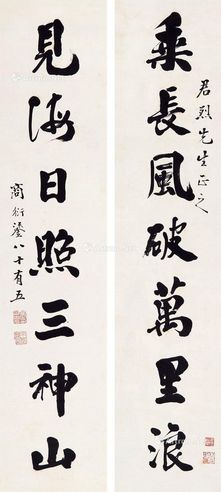 乘長風破萬里浪
君烈先生正之
見海日照三神山
商衍鎏八十有五